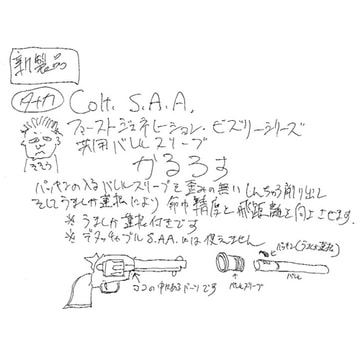 新製品
タナカ
Colt. S.A.A.
ファーストジェネレーション・ビズリーシリーズ
共用バレルスリーブ
かるろす
パッキンの入るバレルスリーブを歪みの無いしんちゅう削り出し
そしてうましか選抜により命中精度と飛距離を向上させます。
※うましか選抜付きです
※デタッチャブルS.A.A.には使えません
パッキン(うましか選抜)
ココの中にあるパーツです
バレルスリーブ
バレル